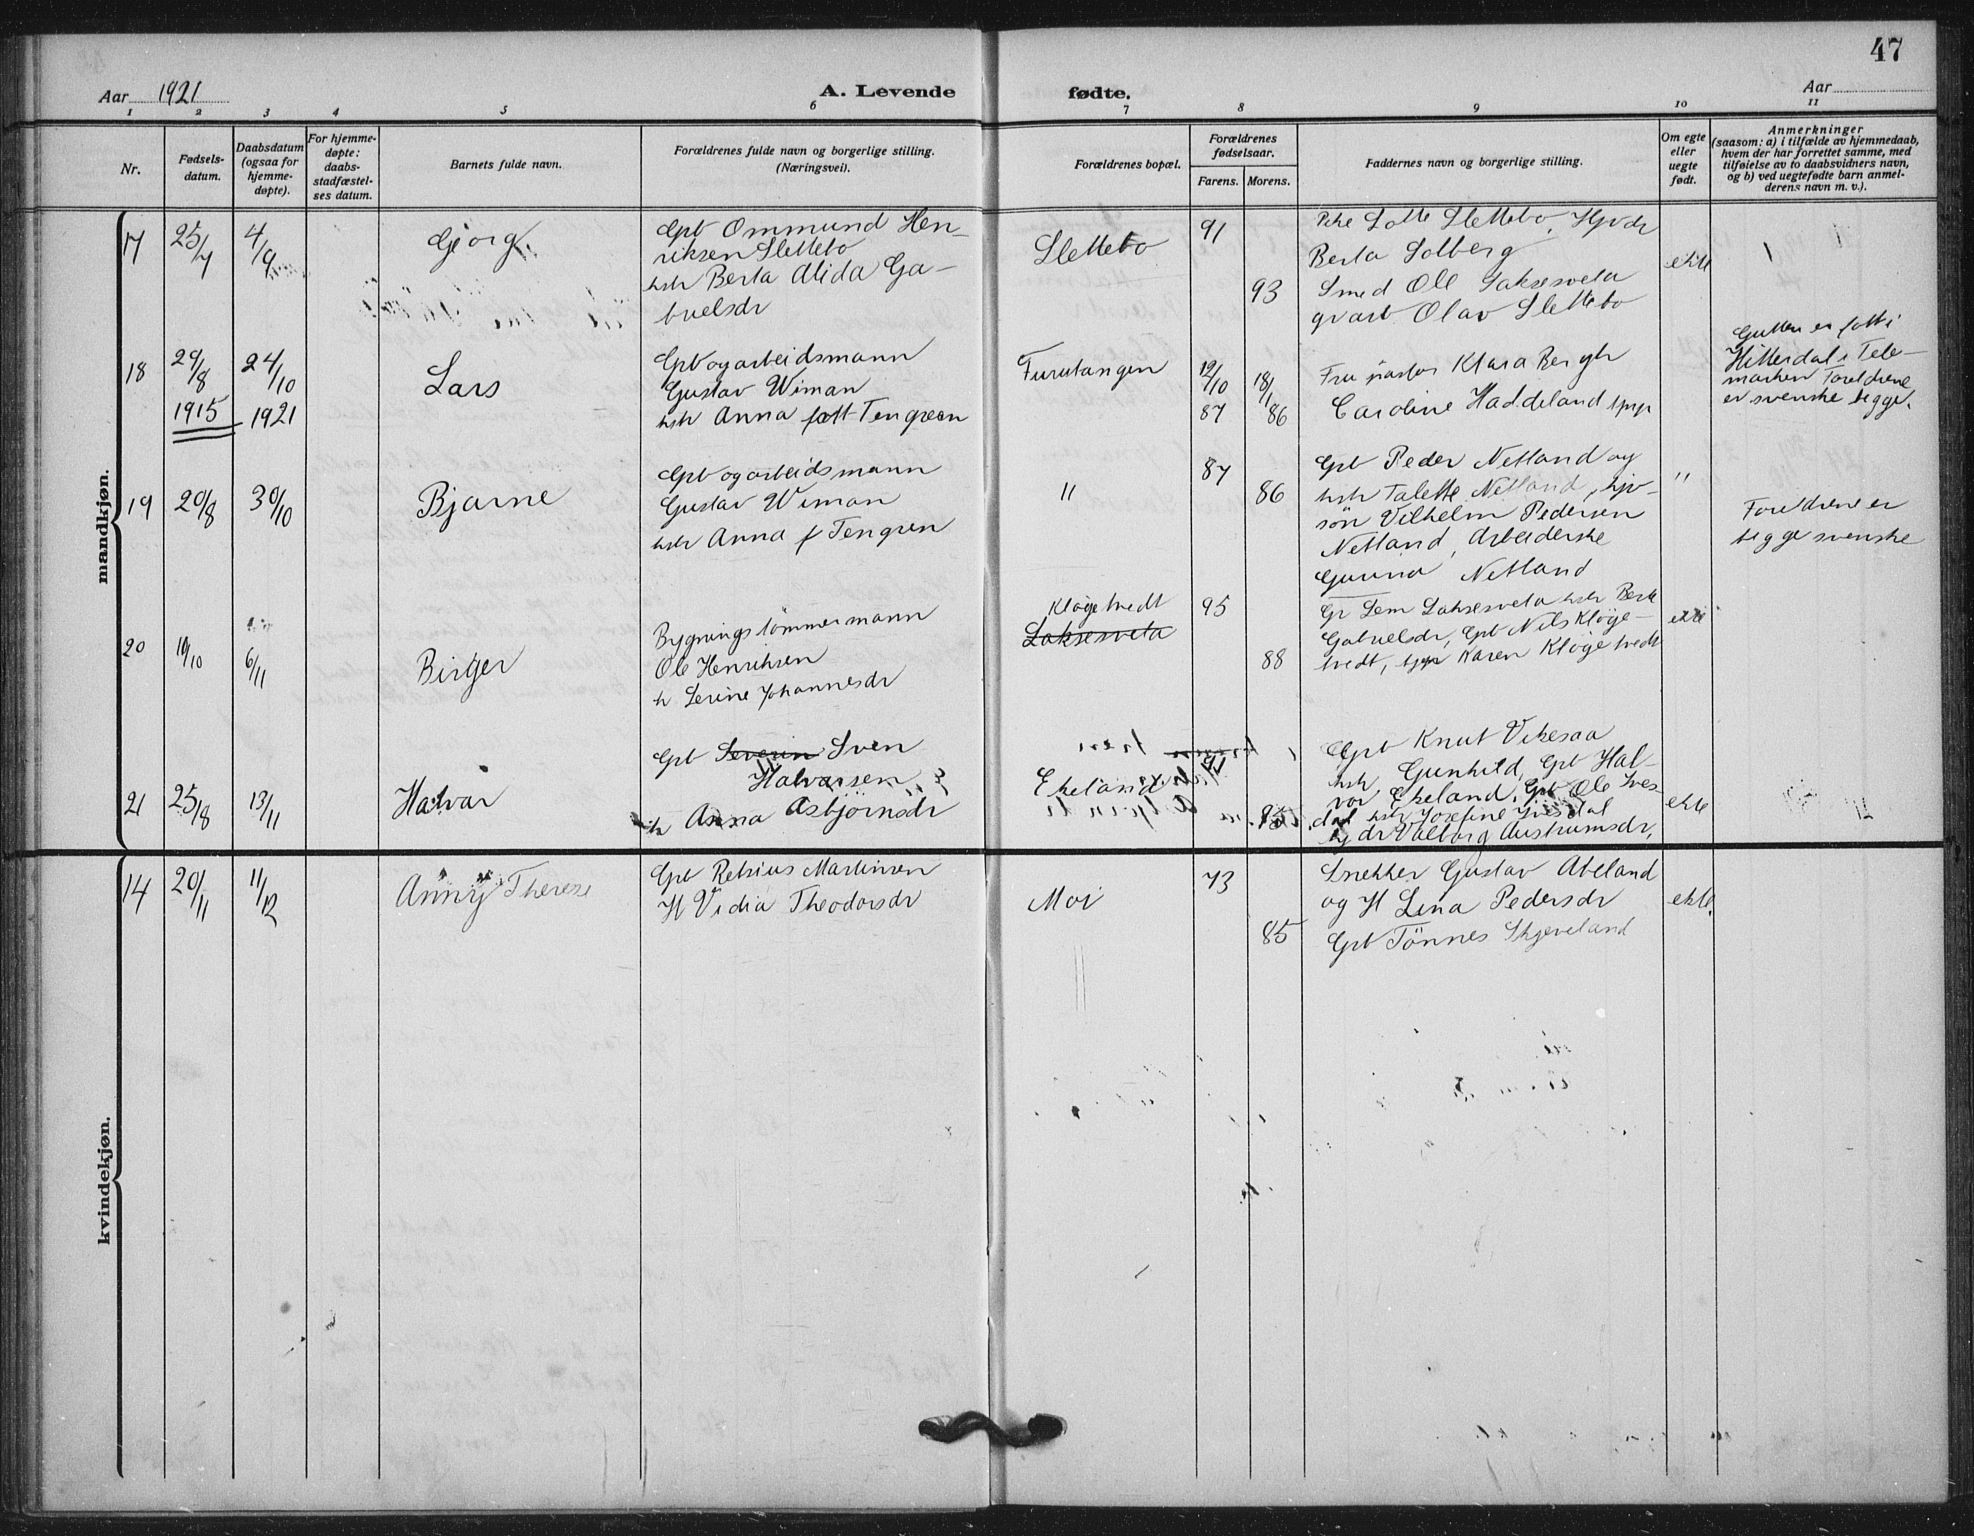 47
Aar 1921
A. Levende
fødte.
Aar
1 2 3 4 5 6 7 8 9 10 11
Nr.
Fødsels-
datum.
Daabsdatum
(ogsaa for
hjemme-
døpte).
For hjemme-
døpte:
daabs-
stadfæstel-
ses datum.
Barnets fulde navn.
Forældrenes fulde navn og borgerlige stilling.
(Næringsvei).
Forældrenes bopæl.
Forældrenes
fødselsaar.
Farens. Morens.
Faddernes navn og borgerlige stilling.
Om egte
eller
uegte
født.
Anmerkninger
(saasom: a) i tilfælde av hjemmedaab,
hvem der har forrettet samme, med
tilføielse av to daabsvidners navn,
og b) ved uegtefødte barn anmel-
derens navn m. v.).
mandkjøn.
17
25/7
4/9
Georg.
Gpt Ommund Hen-
riksen Slettebo
hstr Berta Alida Ga-
brielsdr
Slettebo
91
93
Pike Lotte Slettebo, Hpvdr
Berta Solberg
Smed Ole Laksesvela
Olav Slettebo
ekte
18
29/8
1915
24/10
1921
Lars
Gpt og arbeidsmann
Gustav Wiman
hstr Anna født Tengreen
Furutangen
12/10
87
18/1
86
Fru pastor Klara Bergh
Caroline Haddeland
Gutten er født i
Hitterdal i Tele-
marken Foreldrene
er svenske begge.
19
20/8
30/10
Bjarne
Gpt og arbeidsmann
Gustav Wiman
hstr Anna f Tengren
"
87
86
Gpt Peder Netland og
hstr Talette Netland, hjv-
søn Vilhelm Pedersen
Netland, Arbeiderske
Gunna Netland
"
Foreldrene er
begge svenske
20
19/10
6/11
Birger
Bygningstømmermann
Ole Henriksen
h Serine Johannesdr
Kløgetvedt
Laksesvela
95
88
Gr Sem Laksesvela hstr Berte
Gabrielsdr, Gpt Nils Kløge-
tvedt, Karen Kløgetvedt
ekte
21
25/8
13/11
Halvar
Gpt Severin Sven
Halvarsen
h Anna Asbjørnsdr
Ekeland
95
Gpt Knut Vikesaa
hstr Gunhild, Gpt Hal-
vor Ekeland, Gpt Ole Ives-
dal hstr Josefine Ivesdal
hjdr Valborg Austrumsdr,
ekte
kvindekjøn.
14
20/11
11/12
Anny Therese
Gpt Retsius Martinsen
H Vidia Theodorsdr
Moi
73
85
Snekker Gustav Abeland
og H Lina Pedersdr
Gpt Tønnes Skjeveland
ekte.